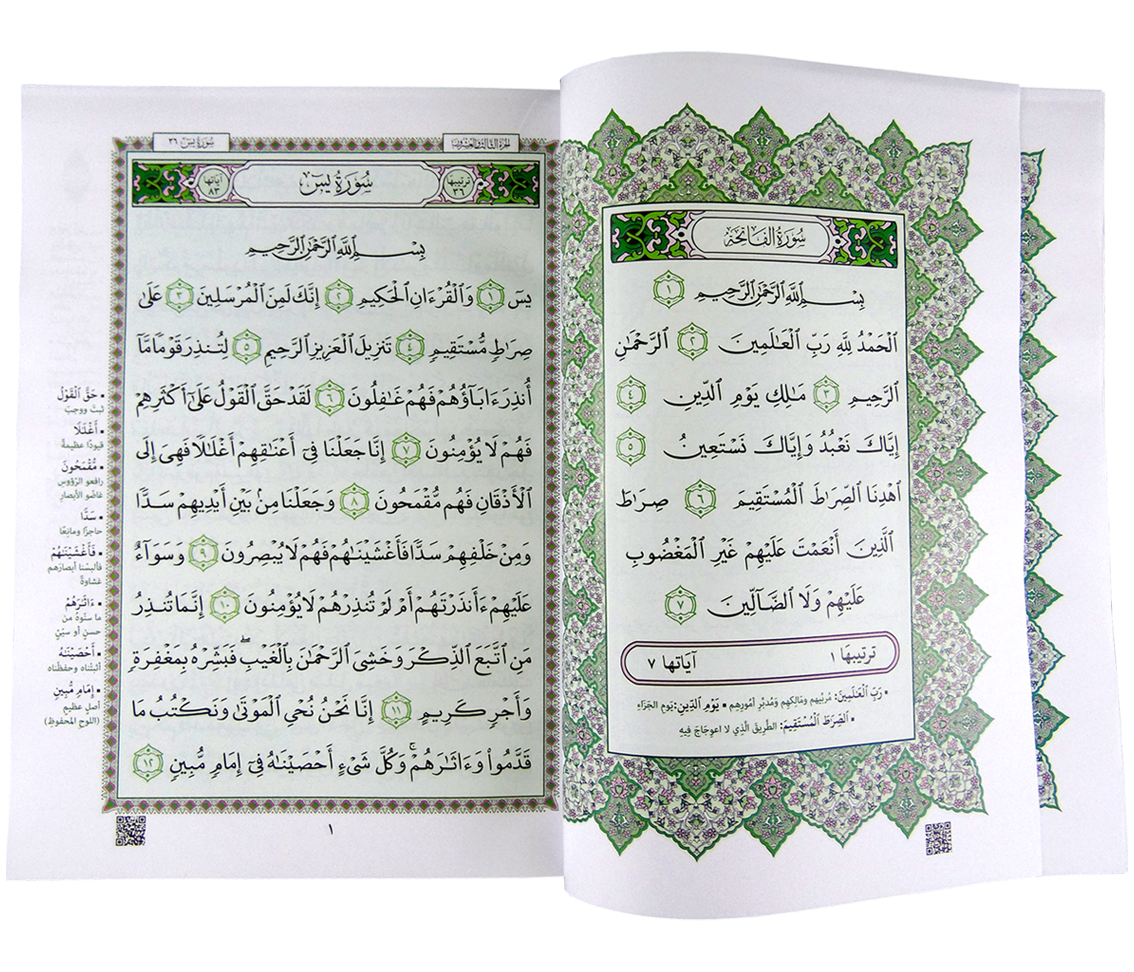 سُورَةُ الفَاتِحَةِ
بِسۡمِ ٱللَّهِ ٱلرَّحۡمَٰنِ ٱلرَّحِيمِ ١
ٱلۡحَمۡدُ لِلَّهِ رَبِّ ٱلۡعَٰلَمِينَ ٢ ٱلرَّحۡمَٰنِ
ٱلرَّحِيمِ ٣ مَٰلِكِ يَوۡمِ ٱلدِّينِ ٤
إِيَّاكَ نَعۡبُدُ وَإِيَّاكَ نَسۡتَعِينُ ٥
ٱهۡدِنَا ٱلصِّرَٰطَ ٱلۡمُسۡتَقِيمَ ٦ صِرَٰطَ
ٱلَّذِينَ أَنۡعَمۡتَ عَلَيۡهِمۡ غَيۡرِ ٱلۡمَغۡضُوبِ
عَلَيۡهِمۡ وَلَا ٱلضَّآلِّينَ ٧
ترتيبها ١ آياتها ٧
رَبِّ ٱلۡعَٰلَمِينَ: مُرَبِّيهِم وَمَالِكِهِم وَمُدَبِّرِ أُمُورِهِم ▪ يَوۡمِ ٱلدِّينِ: يَومِ الجَزَاءِ
▪ ٱلصِّرَٰطَ ٱلۡمُسۡتَقِيمَ: الطَّرِيقَ الَّذِي لا اعوِجَاجَ فِيهِ
الجزء الثالث والعشرون
سُورَةُ يسٓ ٣٦
ترتيبها ٣٦ سُورَةُ يسٓ آياتها ٨٣
بِسۡمِ ٱللَّهِ ٱلرَّحۡمَٰنِ ٱلرَّحِيمِ
يسٓ ١ وَٱلۡقُرۡءَانِ ٱلۡحَكِيمِ ٢ إِنَّكَ لَمِنَ ٱلۡمُرۡسَلِينَ ٣ عَلَىٰ
صِرَٰطٖ مُّسۡتَقِيمٖ ٤ تَنزِيلَ ٱلۡعَزِيزِ ٱلرَّحِيمِ ٥ لِتُنذِرَ قَوۡمٗا مَّآ
أُنذِرَ ءَابَآؤُهُمۡ فَهُمۡ غَٰفِلُونَ ٦ لَقَدۡ حَقَّ ٱلۡقَوۡلُ عَلَىٰٓ أَكۡثَرِهِمۡ
فَهُمۡ لَا يُؤۡمِنُونَ ٧ إِنَّا جَعَلۡنَا فِيٓ أَعۡنَٰقِهِمۡ أَغۡلَٰلٗا فَهِيَ إِلَى
ٱلۡأَذۡقَانِ فَهُم مُّقۡمَحُونَ ٨ وَجَعَلۡنَا مِنۢ بَيۡنِ أَيۡدِيهِمۡ سَدّٗا
وَمِنۡ خَلۡفِهِمۡ سَدّٗا فَأَغۡشَيۡنَٰهُمۡ فَهُمۡ لَا يُبۡصِرُونَ ٩ وَسَوَآءٌ
عَلَيۡهِمۡ ءَأَنذَرۡتَهُمۡ أَمۡ لَمۡ تُنذِرۡهُمۡ لَا يُؤۡمِنُونَ ١٠ إِنَّمَا تُنذِرُ
مَنِ ٱتَّبَعَ ٱلذِّكۡرَ وَخَشِيَ ٱلرَّحۡمَٰنَ بِٱلۡغَيۡبِۖ فَبَشِّرۡهُ بِمَغۡفِرَةٖ
وَأَجۡرٖ كَرِيمٍ ١١ إِنَّا نَحۡنُ نُحۡيِ ٱلۡمَوۡتَىٰ وَنَكۡتُبُ مَا
قَدَّمُواْ وَءَاثَٰرَهُمۡۚ وَكُلَّ شَيۡءٍ أَحۡصَيۡنَٰهُ فِيٓ إِمَامٖ مُّبِينٖ ١٢
▪ حَقَّ ٱلۡقَوۡلُ
ثبتَ ووجبَ
▪ أَغۡلَٰلٗا
قيودًا عظيمةً
▪ مُّقۡمَحُونَ
رافعو الرّؤوسِ
غاضّو الأبصارِ
▪ سَدّٗا
حاجزًا ومانعًا
▪ فَأَغۡشَيۡنَٰهُمۡ
فألبسْنا أبصارَهم
غشاوةً
▪ ءَاثَٰرَهُمۡ
ما سنّوهُ من
حسنٍ أو سيّئٍ
▪ أَحۡصَيۡنَٰهُ
أثبتْناه وحفظْناه
▪ إِمَامٖ مُّبِينٖ
أصلٍ عظيمٍ
(اللوح المحفوظ)
١